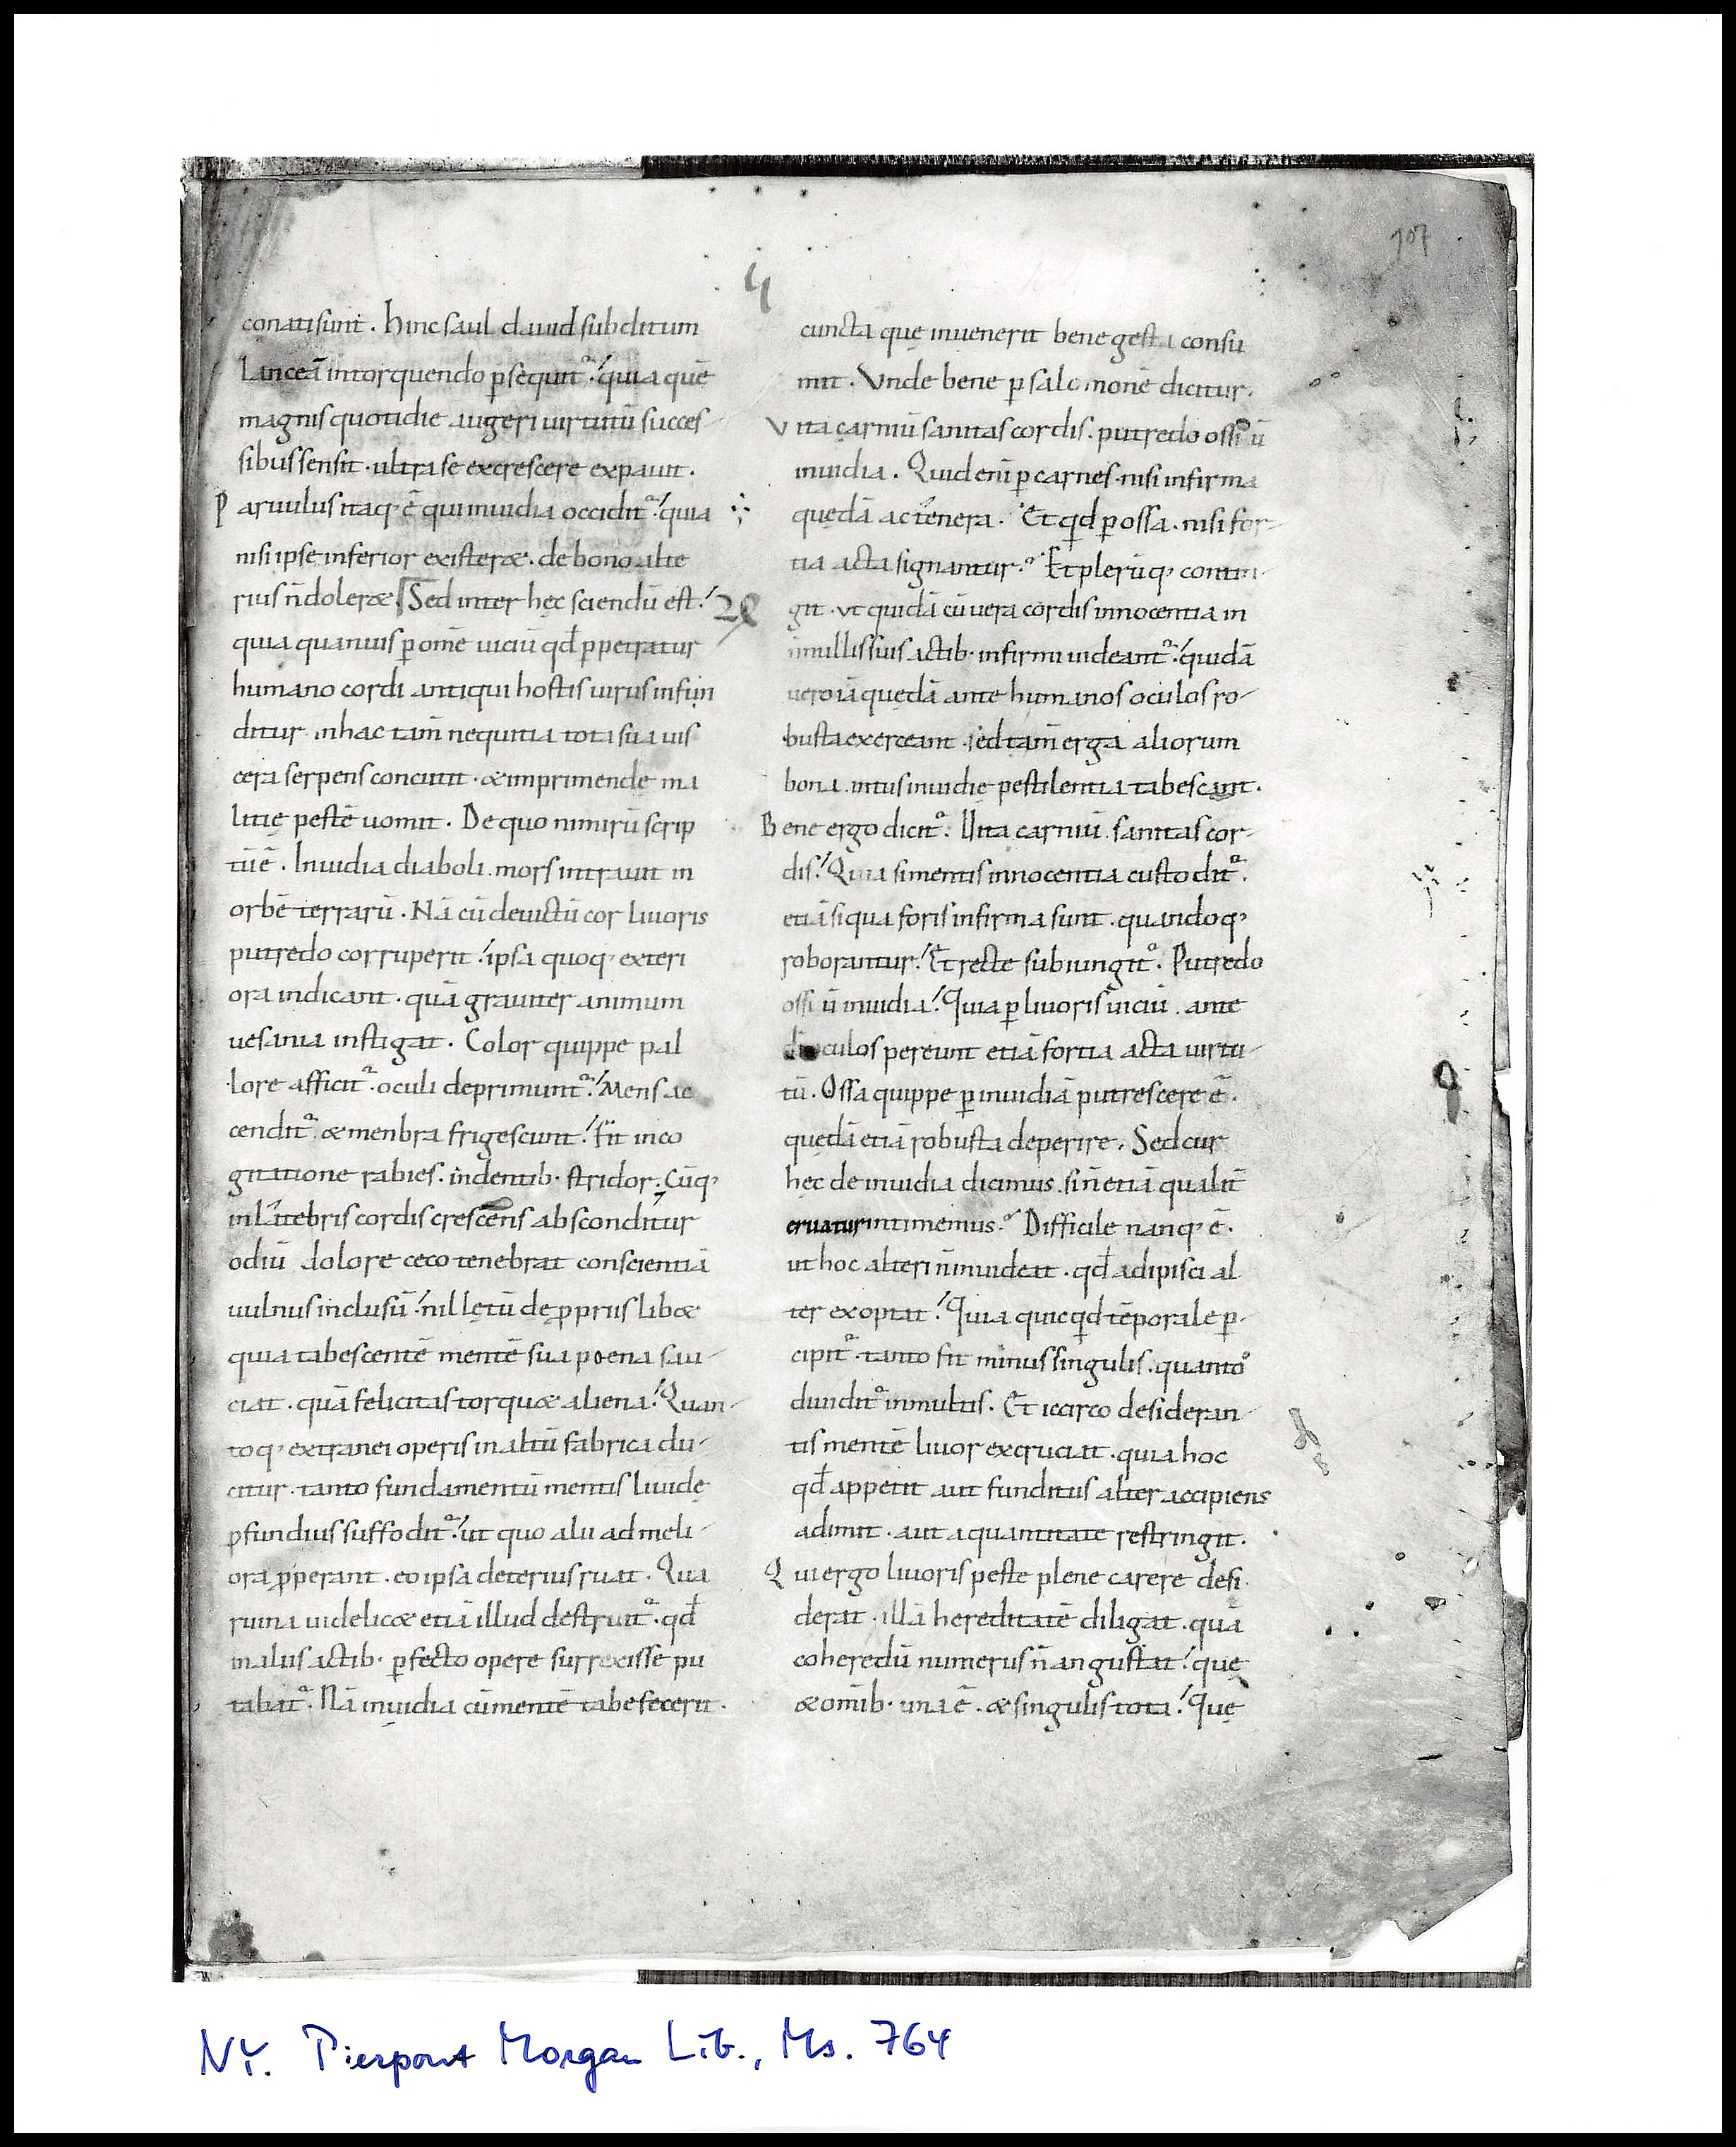 107
4
conati sunt. hinc saul dauid subditum
lanceā intorquendo ꝑsequit᷑. quia quē
magnis quotidie augeri uirtutū succes-
sibus sensit. ultra se excrescere expauit.
Paruulus itaq; ē qui inuidia occidit᷑. quia
nisi ipse inferior existeræ. de bono alte
rius n̄ doleræ. Sed inter hęc sciendū est.
quia quanuis ꝑ om̄e uiciū qđ ꝑpetratur
humano cordi antiqui hostis uirus infun
ditur. in hac tam̄ nequitia tota sua uis
cera serpens concutit. & imprimendę ma
litię pestē uomit. De quo nimirū scrip
tū ē. Inuidia diaboli. mors intrauit in
orbē terrarū. Nā cū deuictū cor liuoris
putredo corruperit. ipsa quoq; exteri
ora indicant. quā grauiter animum
uesania instigat. Color quippe pal
lore afficit᷑. oculi deprimunt᷑. Mens ac
cendit᷑. & menbra frigescunt. Fit in co
gitatione rabies. in dentib. stridor. Cūq;
in latebris cordis crescens absconditur
odiū dolore ceco tenebrat conscientiā
uulnus inclusū. nil lętū de ꝓpriis lib&
quia tabescentē mentē sua poena sau-
ciat. quā felicitas torqu& aliena. Quan-
toq; extranei operis in altū fabrica du-
citur. tanto fundamentū mentis liuidę
ꝓfundius suffodit᷑. ut quo alii ad meli-
ora ꝓperant. eo ipsa deterius ruat. Qua
ruina uidelic& etiā illud destruit᷑. qđ
malis actib. ꝑfecto opere surrexisse pu
tabat᷑. Nā inuidia cū mentē tabefecerit.
cuncta quę inuenerit bene gesta consu
mit. Vnde bene ꝑ salomonē dicitur.
Vita carniū sanitas cordis. putredo ossiū
inuidia. Quid enī ꝑ carnes. nisi infirma
quędā ac tenera. Et qd ꝑ ossa. nisi for-
tia acta signantur. Et plerūq; contin-
git. ut quidā cū uera cordis innocentia in
nonnullis suis actib. infirmi uideant᷑. quidā
uero iā quędā ante humanos oculos ro-
busta exerceant. sed tam̄ erga aliorum
bona. intus inuidie pestilentia tabescant.
Bene ergo dicit᷑. Uita carniū. sanitas cor-
dis. Quia si mentis innocentia custodit᷑.
etiā siqua foris infirma sunt. quandoq;
roborantur. Et recte subiungit᷑. Putredo
ossiū inuidia. Quia ꝑ liuoris uiciū. ante
di oculos pereunt etiā fortia acta uirtu-
tū. Ossa quippe ꝑ inuidiā putrescere ē.
quędā etiā robusta deperire. Sed cur
hęc de inuidia dicimus. si n̄ etiā qualit̄
eruatur intimemus. Difficile nanq; ē.
ut hoc alteri n̄ inuideat. qđ adipisci al
ter exoptat. Quia quicqd tēporale ꝑ-
cipit᷑. tanto fit minus singulis. quanto
diuidit᷑ in multis. Et iccirco desideran-
tis mentē liuor excruciat. quia hoc
qđ appetit aut funditus alter accipiens
adimit. aut a quantitate restringit.
Qui ergo liuoris peste plene carere desi
derat. illā hereditatē diligat. quā
coheredū numerus n̄ angustat. quę
& omib. una ē. & singulis tota. Quę
NY. Pierpont Morgan Lib., Ms. 764